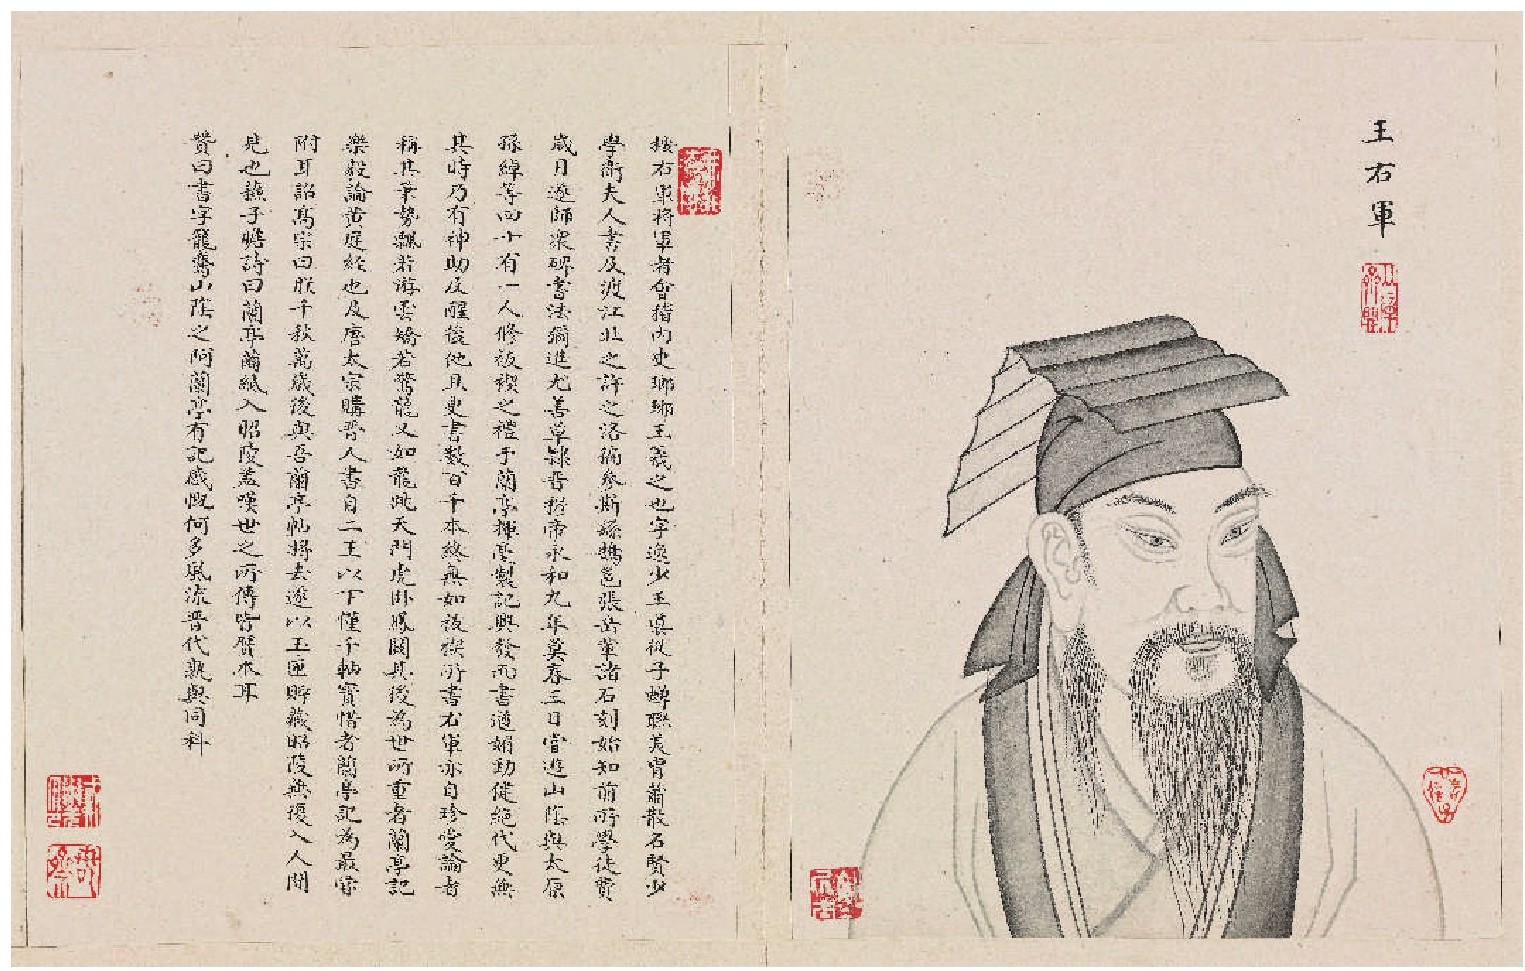 王右軍
按右軍將軍者會稽內史瑯琊王羲之也字逸少王導從子蟬聯美胄蕭散名賢少
學衛夫人書及渡江北之許之洛徧參斯繇鵠邕張岳華諸石刻始知前所學徒費
歲月遂師眾碑書法彌進尤善草隸晋穆帝永和九年莫春三日嘗遊山陰與太原
孫綽等四十有一人修祓禊之禮于蘭亭揮毫製記興發而書遒媚勁健絕代更無
其時乃有神助及醒後他日更書數百千本終無如祓禊所書右軍亦自珍愛論者
稱其筆勢飄若游雲矯若驚龍又如龍跳天門虎卧鳳闕其後為世所重者蘭亭記
樂毅論黃庭經也及唐太宗購晋人書自二王以下僅千帖寶惜者蘭亭記為最常
附耳詔高宗曰朕千秋萬歲後與吾蘭亭帖將去遂以玉匣貯藏昭陵無復入人間
見也蘇子瞻詩曰蘭亭繭紙入昭陵蓋嘆世之所傳皆贋本耳
贊曰書字籠鵞山陰之阿蘭亭有記感慨何多風流晋代孰與同科